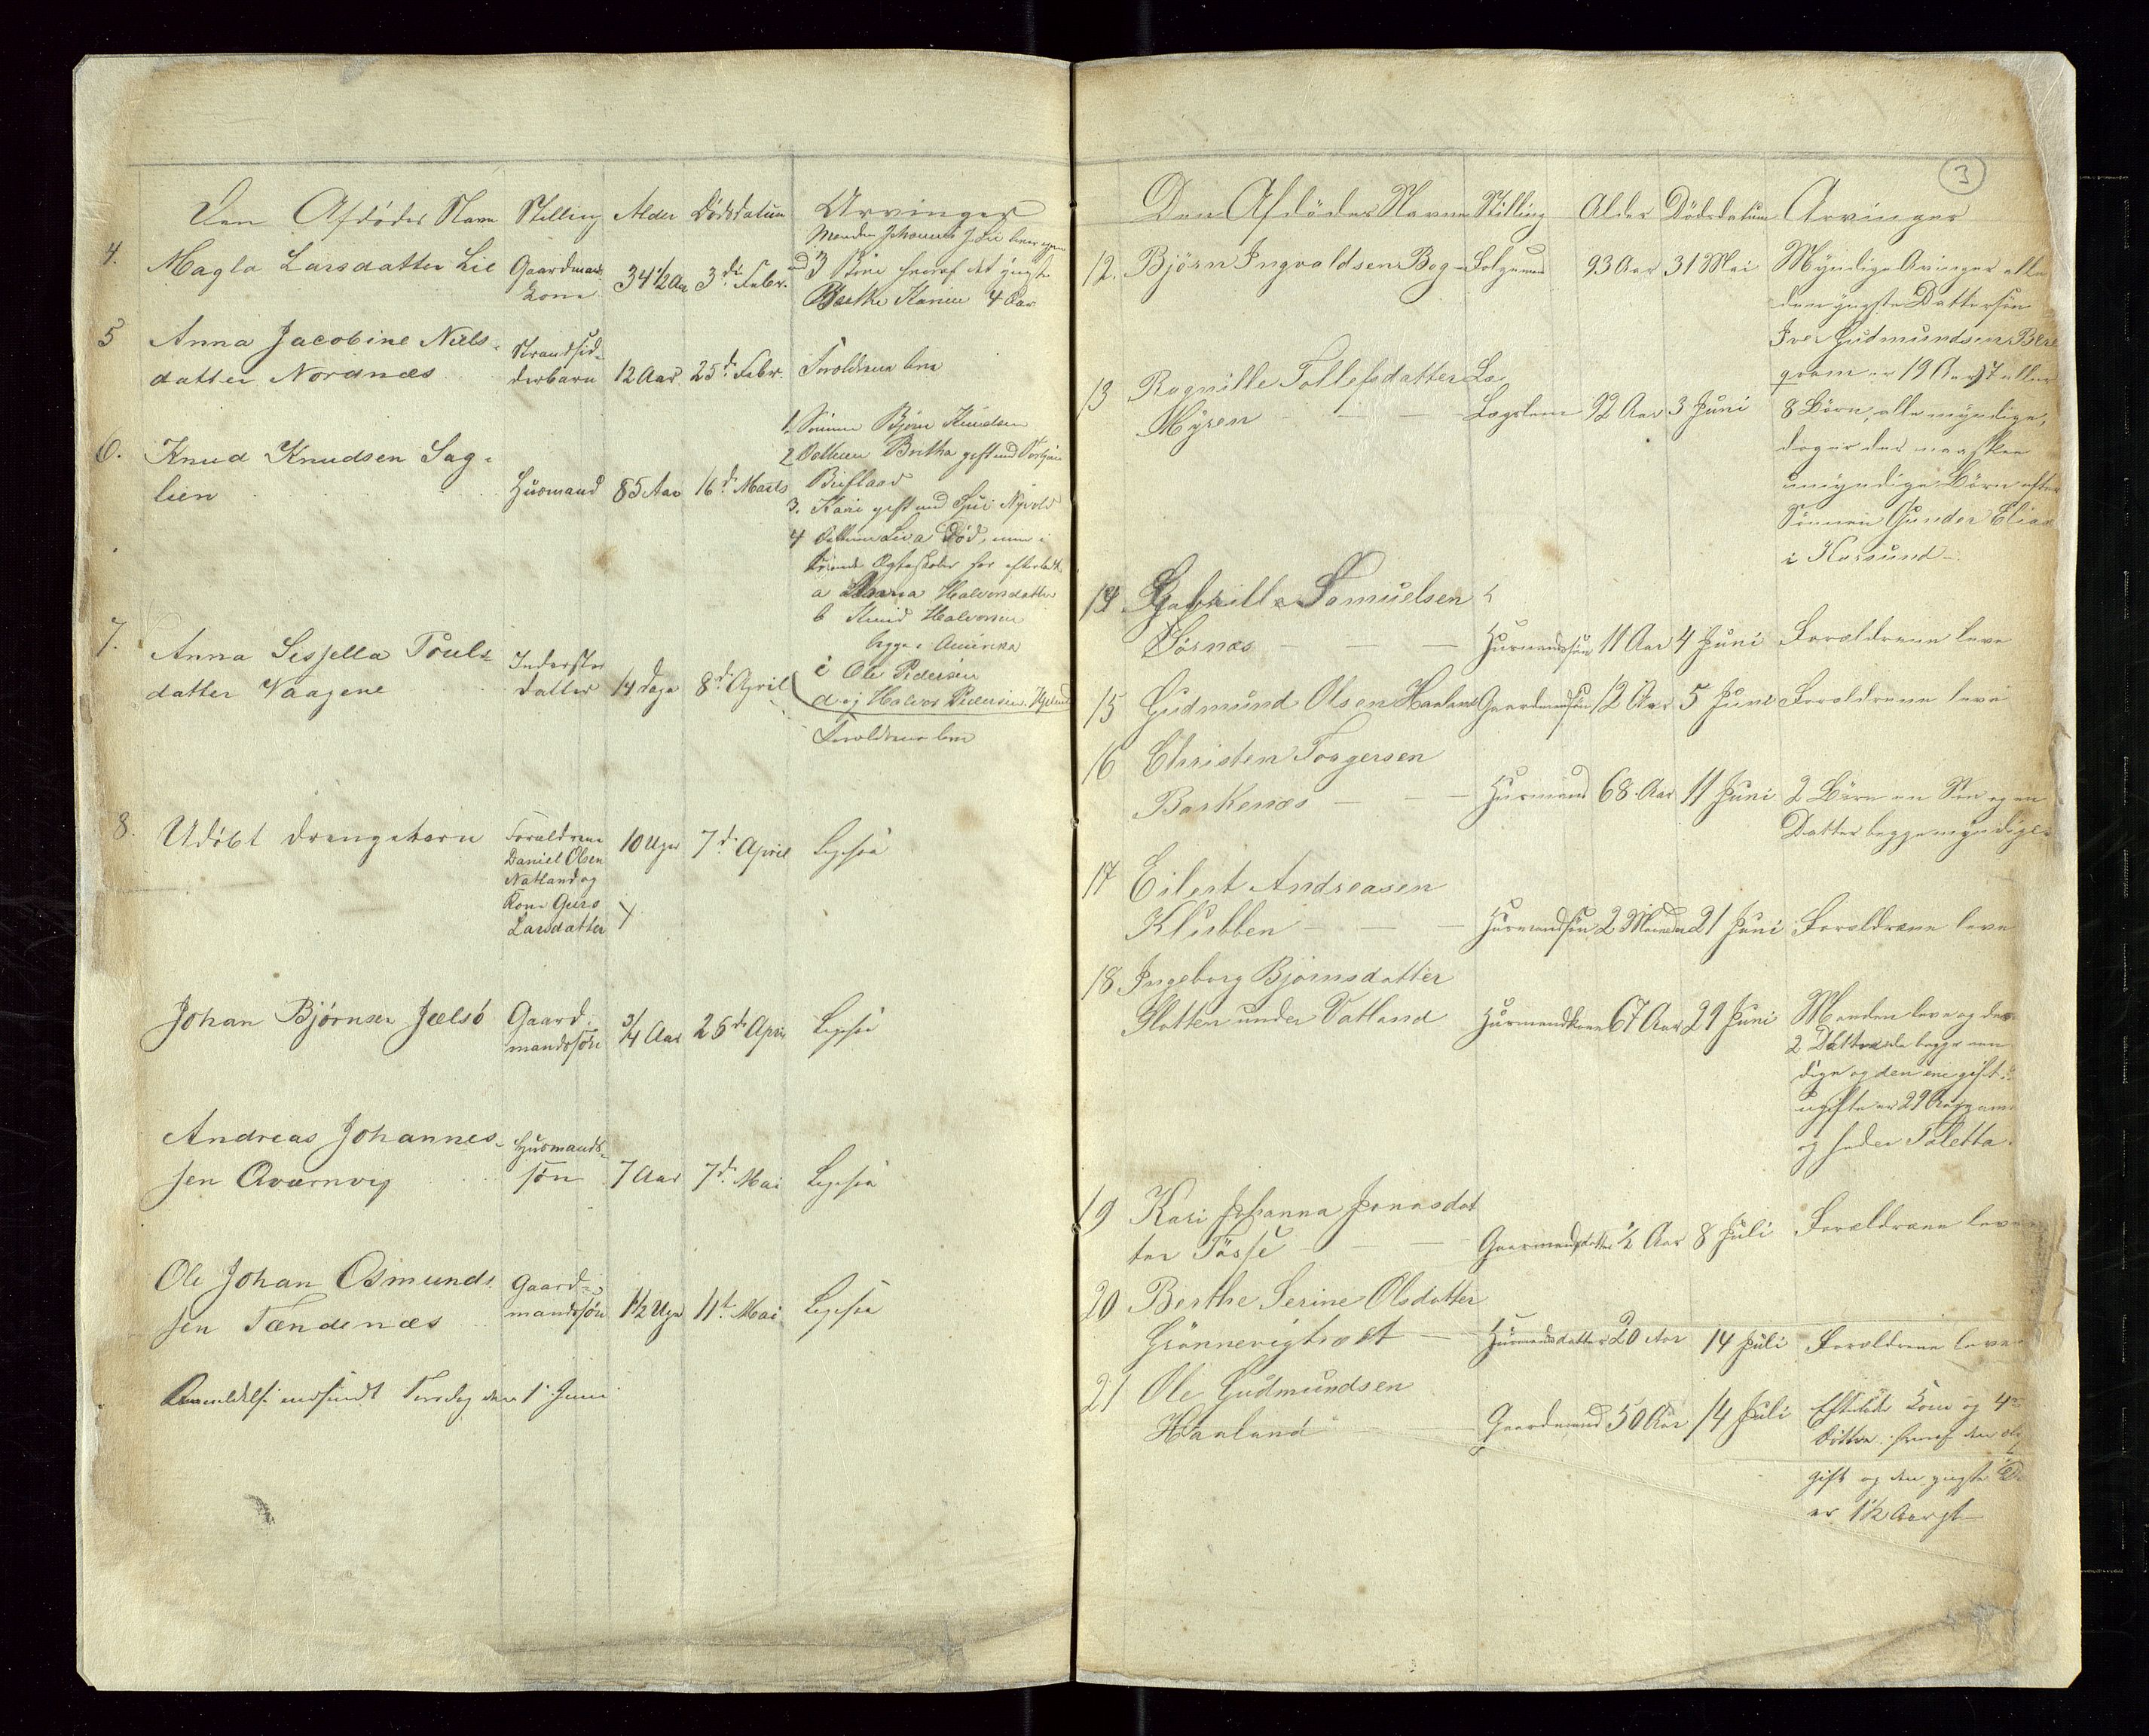 Den Afdødes Navn Stilling Alder Dødsdatum Arvinger
4. Magla Larsdatter Lie Gaardmands Kone 34 1/2 Aar 3die Febr.
Manden Johannes J. Lie lever igjen
med 3 Børn hvoraf det yngste
Berthe Karine 4 Aar
5 Anna Jacobine Niels-
datter Nordnæs Strandsid-
derbarn 12 Aar 25d Febr. Forældrene leve
6. Knud Knudsen Sag-
lien Husmand 85 Aar 16d Marts
1. Sønnen Bjørn Knudsen
2 Datteren Bertha gift med
3. Kari gift med
4 Datteren Siva død, men i
Ægteskaber har efterladt
a Anna Halvorsdatter
b Knud Halvorsen
begge i Amerika
c Ole Pedersen
d og Halvor Pedersen
7. Anna Sesjella Pouls-
datter Vaagene Inderster
datter 14 Dage 8d April
Forældrene leve
8. Udøbt Drengebarn Forældrene
Daniel Olsen
Natland og
Kone Guro
Larsdatter
10 Uger 7d April Ligesaa
Johan Bjørnsen Jælsø Gaard-
mandssøn 3/4 Aar 25de April Ligesaa
Andreas Johannes-
sen Qværnvig Husmands-
søn 7 Aar 7d Mai Ligesaa
Ole Johan Osmunds
sen Tændenæs Gaard-
mandssøn 1 1/2 Uge 11te Mai Ligesaa
Anmeldelse indsendt Torsdag den 1 Juni
3
Den Afdødes Navn Stilling Alder Dødsdatum Arvinger
12. Bjørn Ingvaldsen Bog- 93 Aar 31 Mai Myndige Arvinger alle
den yngste Dattersøn
Iver Gudmundsen
er 19 Aar
13 Ragnille Tollefsdatter
Myren — — Lægslem 92 Aar 3 Juni 8 Børn, alle myndige,
dog er der maaske
umyndige Børn efter
Sønnen Gunder Elias
i Karsund
14 Gabriel Samuelsen
Sørnæs — — Husmandssøn 11 Aar 4 Juni Forældrene leve
15 Gudmund Olsen Haaland Gaardmandssøn 12 Aar 5 Juni Forældrene leve
16 Christen Torgersen
Barkenæs — — Husmand 68 Aar 11 Juni 2 Børn en Søn og en
Datter begge myndige
17 Eilert Andreasen
Klubben — — Husmandssøn 2 Maaneder 21 Juni Forældrene leve
18 Ingeborg Bjørnsdatter
Slotten under Vatland Husmandskone 67 Aar 29 Juni Manden leve og des
2 Døttre de begge myn
dige og den ene gift
ugifte er 29 Aar gam
og heder Taletta.
19 Kari Johanna Jonasdat
ter Tøsse — — Gaarmandsdatter 1/2 Aar 8 Juli Forældrene leve
20 Berthe Serine Olsdatter
Grønnevigtræet — Husmandsdatter 20 Aar 14 Juli Forældrene leve
21 Ole Gudmundsen
Haaland — Gaardmand 50 Aar 14 Juli Efterlader Kone og 4re
Døttre, hvoraf den
gift og den yngste
er 1 1/2 Aar gl